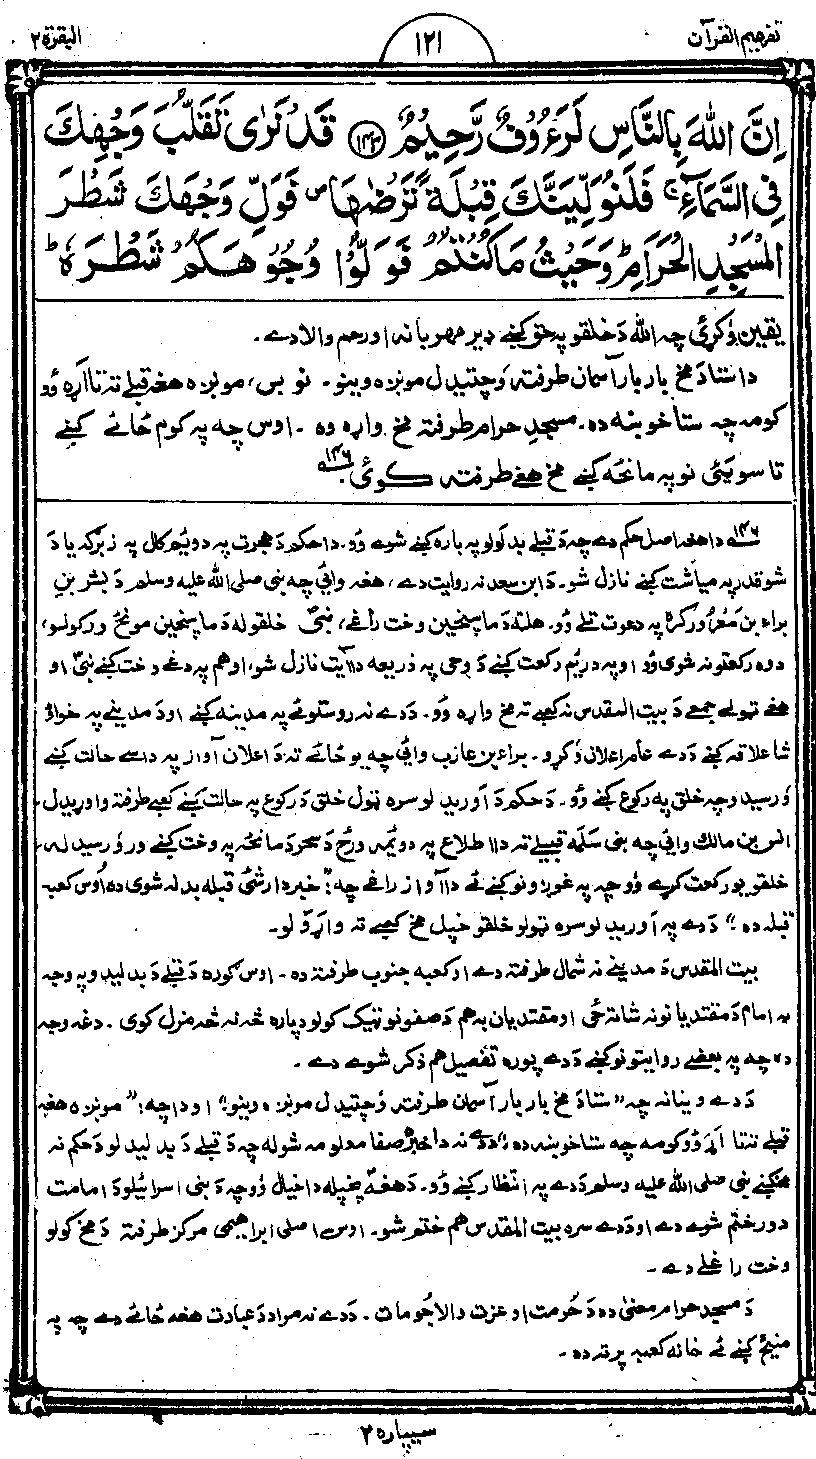 تفہیم القرآن ۱۲۱ البقرة ۲
اِنَّ اللّٰهَ بِالنَّاسِ لَرَءُوْفٌ رَّحِيْمٌ ﴿۱۴۳﴾ قَدْ نَرٰى تَقَلُّبَ وَجْهِكَ
فِى السَّمَآءِ ۚ فَلَنُوَلِّيَنَّكَ قِبْلَةً تَرْضٰىهَا ۪ فَوَلِّ وَجْهَكَ شَطْرَ
الْمَسْجِدِ الْحَرَامِ ؕ وَحَيْثُ مَا كُنْتُمْ فَوَلُّوْا وُجُوْهَكُمْ شَطْرَهٗ ؕ
يقين وکړئ چه الله دَ خلقو په حق کښے ډير مهربانه او رحم والا دے۔
دا ستا دَ مخ بار بار آسمان طرفته وچتيدل مونږه وينو۔ نو بس، مونږه هغه قبلے ته تا اړه وو
کومه چه ستا خوښه ده۔ مسجدِ حرام طرفته مخ واړه وه۔ اوس چه په کوم ځائے کښے
تاسو يئ نو په مانځه کښے مخ هغے طرفته کوئ ۱۴۶
۱۴۶ دا هغه اصل حکم دے چه دَ قبلے بدلولو په باره کښے شوے وو۔ دا حکم دَ هجرت په دويم کال په رجب يا دَ
شوقدر په مياشت کښے نازل شو۔ دَ ابن سعد نه روايت دے، هغه وائي چه نبى صلى الله عليه وسلم دَ بشر بن
براء بن معرور کره په دعوت تلے وو۔ هلته دَ ماسپخين وخت راغے، نبىؐ خلقو له دَ ماسپخين مونځ ورکولو،
دوه رکعتونه شوى وو او په دريم رکعت کښے دَ وحى په ذريعه دا آيت نازل شو، او هم په دغے وخت کښے نبىؐ او
هغے ټولے جمعے دَ بيت المقدس نه کعبے ته مخ واړه وو۔ دَ دے نه روستو ئے په مدينه کښے او دَ مدينے په خواؤ
شا علاقه کښے دَ دے عام اعلان وکړو۔ براء بن عازب وائي چه يو ځائے ته دَ اعلان آواز په داسے حالت کښے
ورسيد و چه خلق په رکوع کښے وو۔ دَ حکم دَ آوريدلو سره ټول خلق دَ رکوع په حالت کښے کعبے طرفته واوړيدل۔
انس بن مالک وائي چه بنى سلمه قبيلے ته دا اطلاع په دوئمه ورځ دَ سحر دَ مانځه په وخت کښے ورورسيدله۔
خلقو يو رکعت کړے وو چه په غوږونو کښے ئے دا آواز راغے چه: "خبردار شئ قبله بدله شوى ده اوس کعبه
قبله ده"۔ دَ دے په آوريدلو سره ټولو خلقو خپل مخ کعبے ته واړولو۔
بيت المقدس دَ مدينے نه شمال طرفته دے او کعبه جنوب طرفته ده۔ اوس ګوره دَ قبلے دَ بدليدو په وجه
به امام دَ مقتديانو نه شاته ځى او مقتديان به هم دَ صفونو ټيک کولو دپاره څه نه څه مزل کوى۔ دغه وجه
ده چه په بعضے روايتونو کښے دَ دے پوره تفصيل هم ذکر شوے دے۔
دَ دے وينا نه چه "ستا دَ مخ بار بار آسمان طرفته وچتيدل مونږه وينو" او دا چه: "مونږه هغه
قبلے ته تا اړه وو کومه چه ستا خوښه ده" دَ دے نه دا خبره صفا معلومه شوله چه دَ قبلے دَ بدليدلو دَ حکم نه
مخکښے نبى صلى الله عليه وسلم دَ دے په انتظار کښے وو۔ دَ هغهؐ خپله دا خيال وو چه دَ بنى اسرائيلو دَ امامت
دور ختم شوے دے او دَ دے سره بيت المقدس هم ختم شو۔ اوس اصلى ابراهيمى مرکز طرفته دَ مخ کولو
وخت راغلے دے۔
دَ مسجد حرام معنىٰ ده دَ حُرمت او عزت والا جُومات۔ دَ دے نه مراد دَ عبادت هغه ځائے دے چه په
مينځ کښے ئے خانه کعبه پرته ده۔
سيپاره ۲